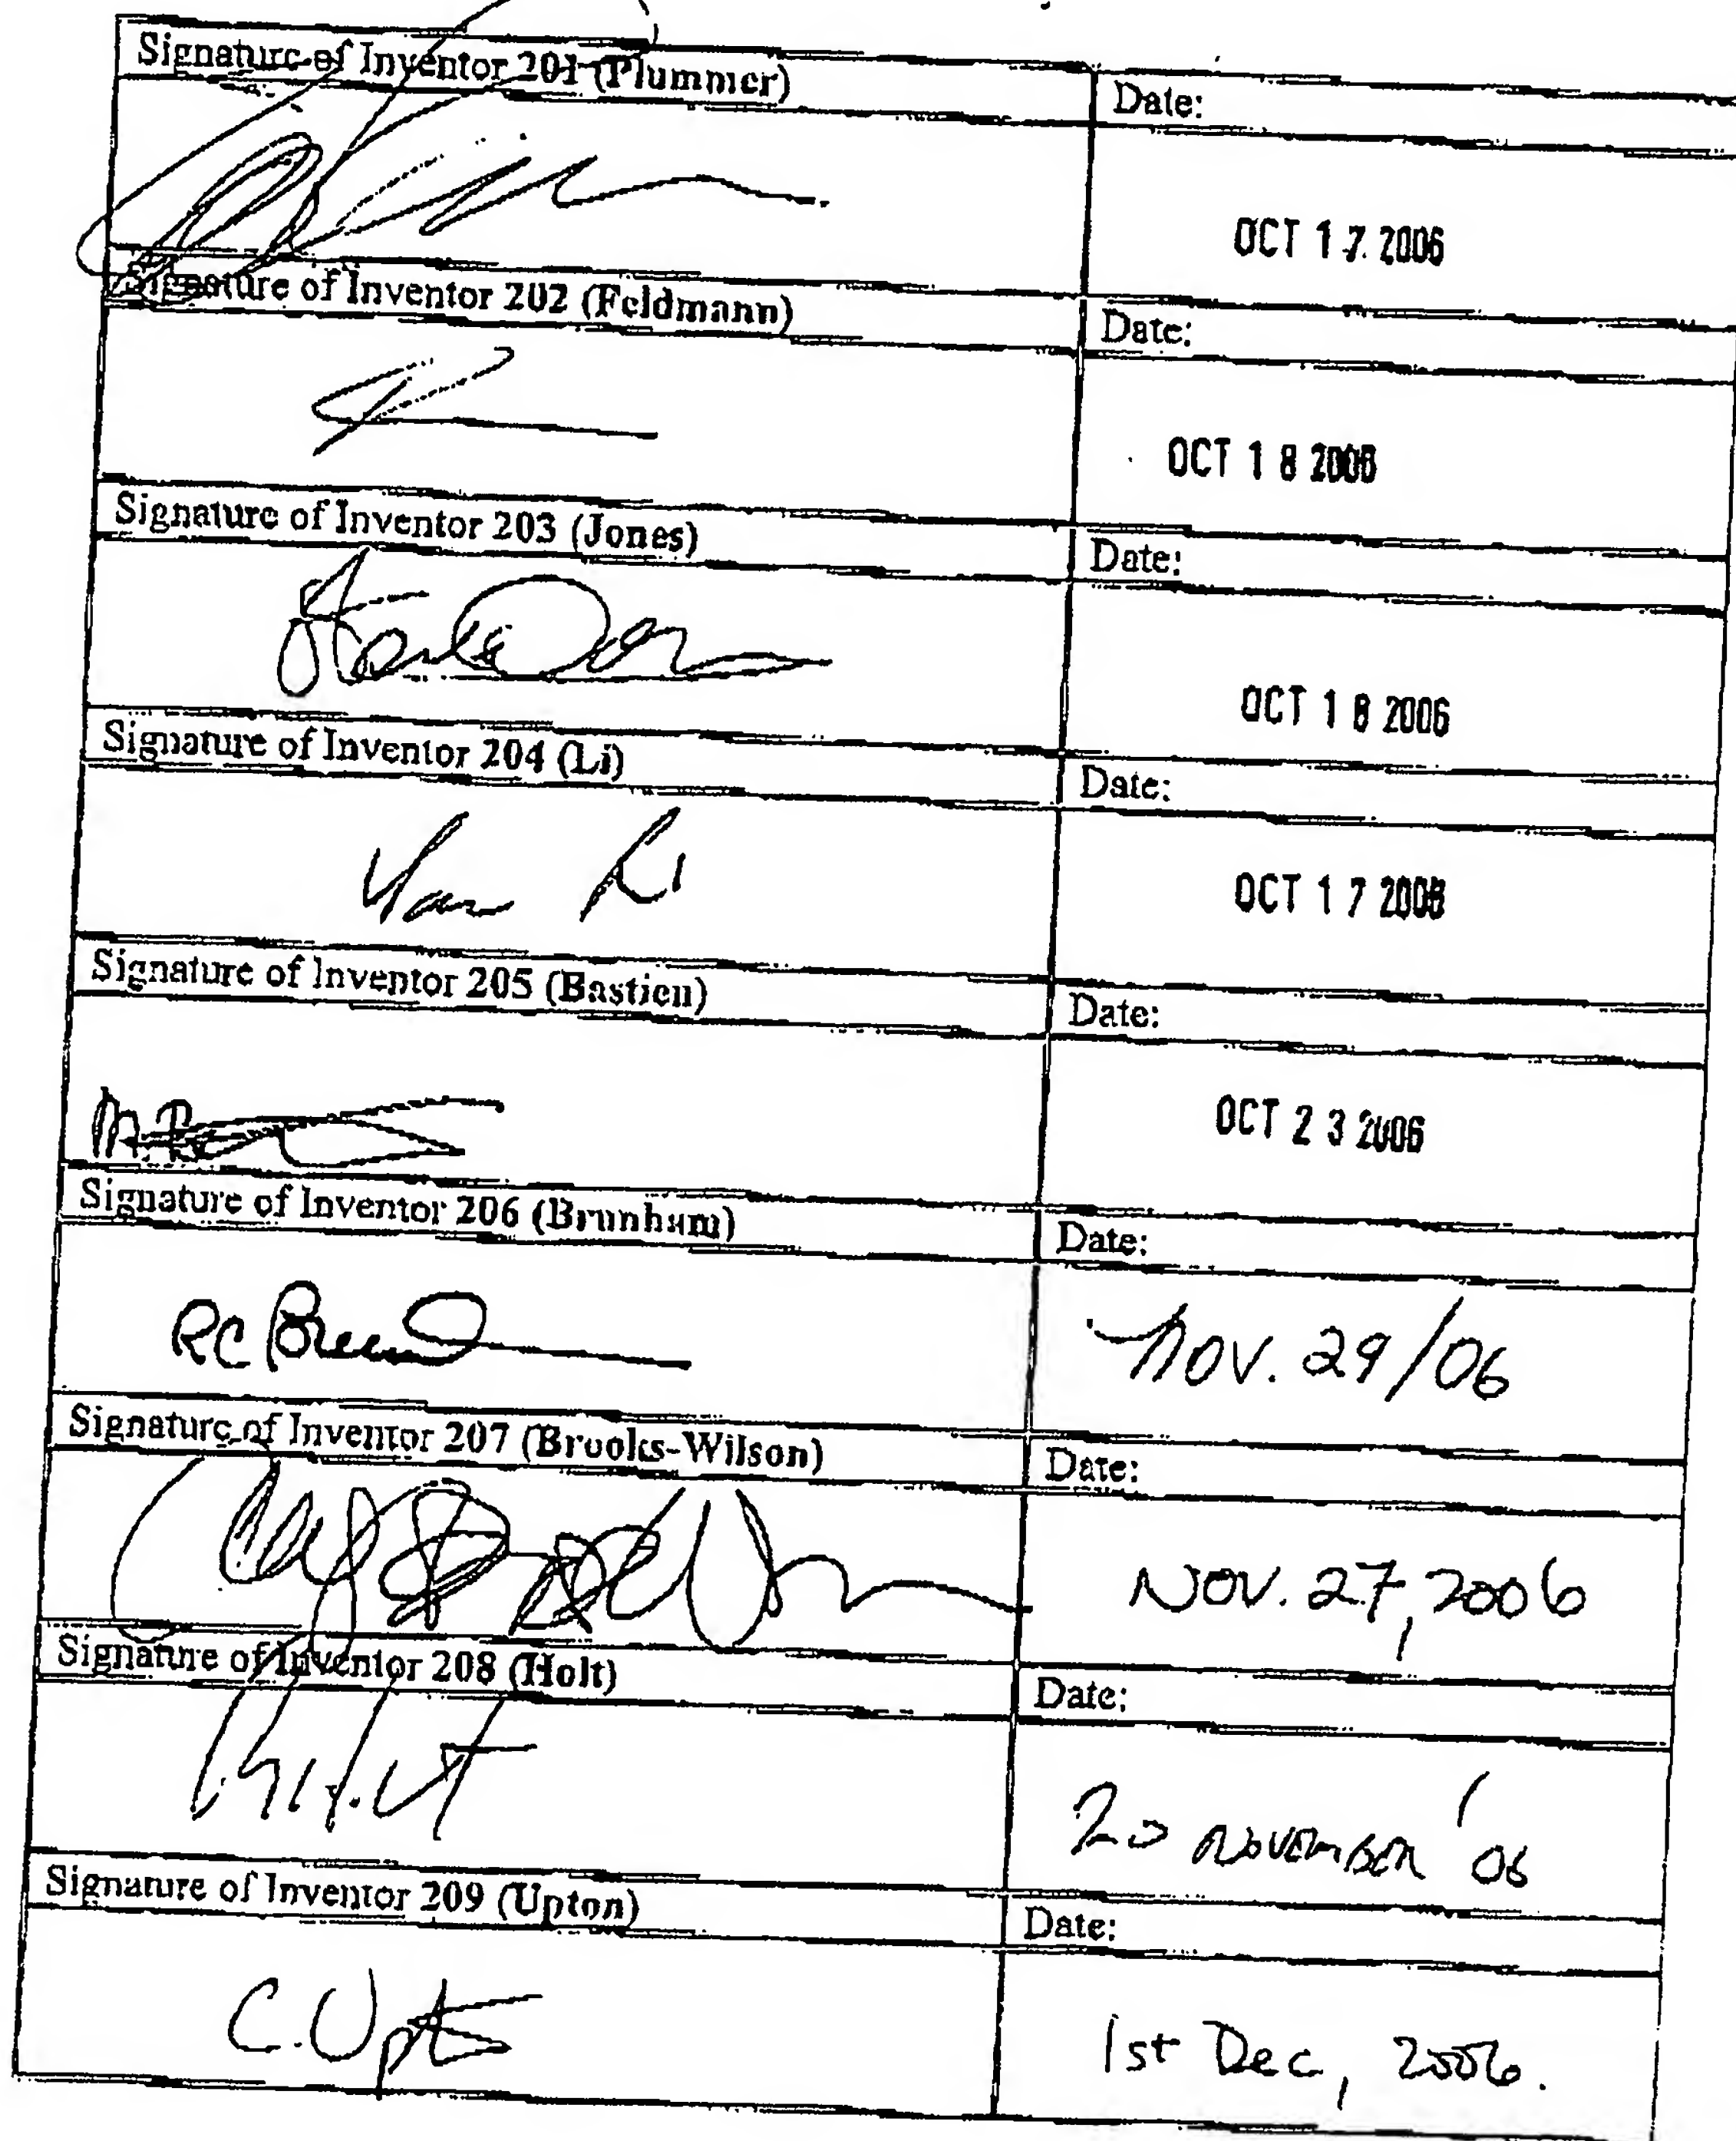 Signature of Inventor 201 (Plummer) Date:
OCT 17 2006
Signature of Inventor 202 (Feldmann) Date:
OCT 18 2006
Signature of Inventor 203 (Jones) Date:
OCT 18 2006
Signature of Inventor 204 (Li) Date:
Yan Li OCT 17 2006
Signature of Inventor 205 (Bastien) Date:
OCT 23 2006
Signature of Inventor 206 (Brunham) Date:
RC Nov. 29/06
Signature of Inventor 207 (Brooks-Wilson) Date:
Nov. 27, 2006
Signature of Inventor 208 (Holt) Date:
20 November '06
Signature of Inventor 209 (Upton) Date:
C. Upton 1st Dec, 2006.